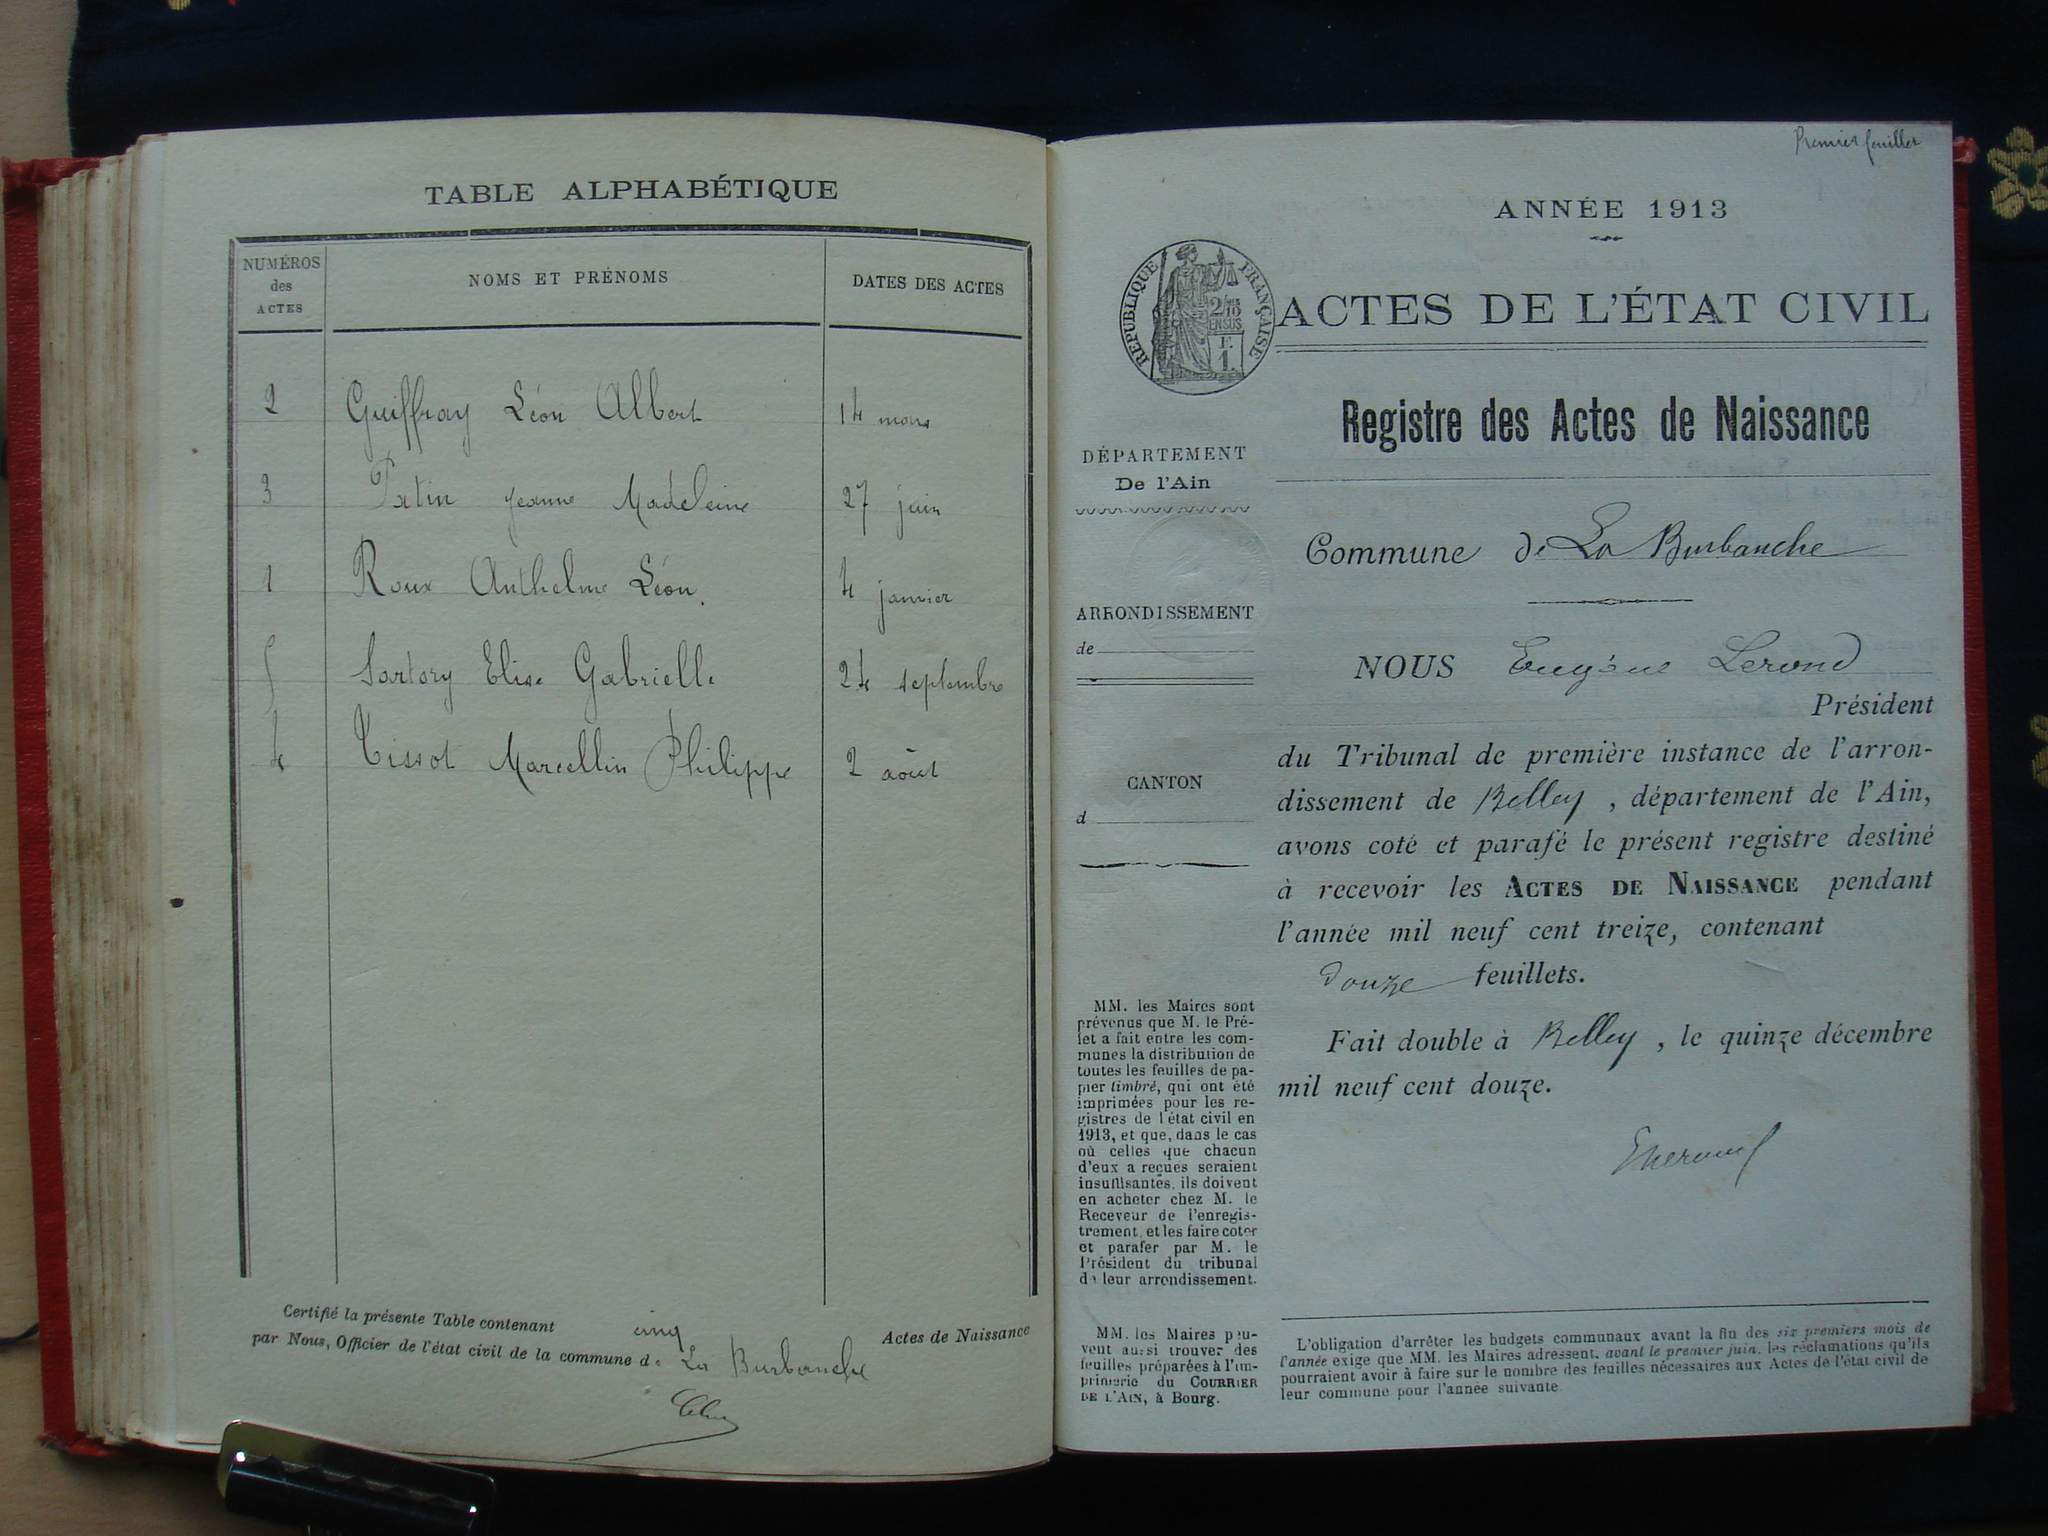 TABLE ALPHABÉTIQUE
NUMÉROS des ACTES
NOMS ET PRÉNOMS
DATES DES ACTES
2 Guiffray Léon Albert 14 mars
3 Patin Jeanne Madeleine 27 juin
1 Roux Anthelme Léon. 4 janvier
5 Sartory Elise Gabrielle 24 septembre
4 Tissot Marcellin Philippe 2 août
Certifié la présente Table contenant cinq Actes de Naissance
par Nous, Officier de l'état civil de la commune de La Burbanche
Premier feuillet
ANNÉE 1913
RÉPUBLIQUE FRANÇAISE
2/10 EN SUS
F. 1.
ACTES DE L'ÉTAT CIVIL
Registre des Actes de Naissance
DÉPARTEMENT
De l'Ain
Commune de La Burbanche
ARRONDISSEMENT
de
NOUS Eugène Lerond
Président
du Tribunal de première instance de l'arron-
dissement de Belley, département de l'Ain,
avons coté et parafé le présent registre destiné
à recevoir les ACTES DE NAISSANCE pendant
l'année mil neuf cent treize, contenant
douze feuillets.
Fait double à Belley, le quinze décembre
mil neuf cent douze.
CANTON
d
MM. les Maires sont
prévenus que M. le Pré-
fet a fait entre les com-
munes la distribution de
toutes les feuilles de pa-
pier timbré, qui ont été
imprimées pour les re-
gistres de l'état civil en
1913, et que, dans le cas
où celles que chacun
d'eux a reçues seraient
insuffisantes, ils doivent
en acheter chez M. le
Receveur de l'enregis-
trement, et les faire coter
et parafer par M. le
Président du tribunal
de leur arrondissement.
MM. les Maires peu-
vent aussi trouver des
feuilles préparées à l'im-
primerie du COURRIER
DE L'AIN, à Bourg.
L'obligation d'arrêter les budgets communaux avant la fin des six premiers mois de
l'année exige que MM. les Maires adressent, avant le premier juin, les réclamations qu'ils
pourraient avoir à faire sur le nombre des feuilles nécessaires aux Actes de l'état civil de
leur commune pour l'année suivante.